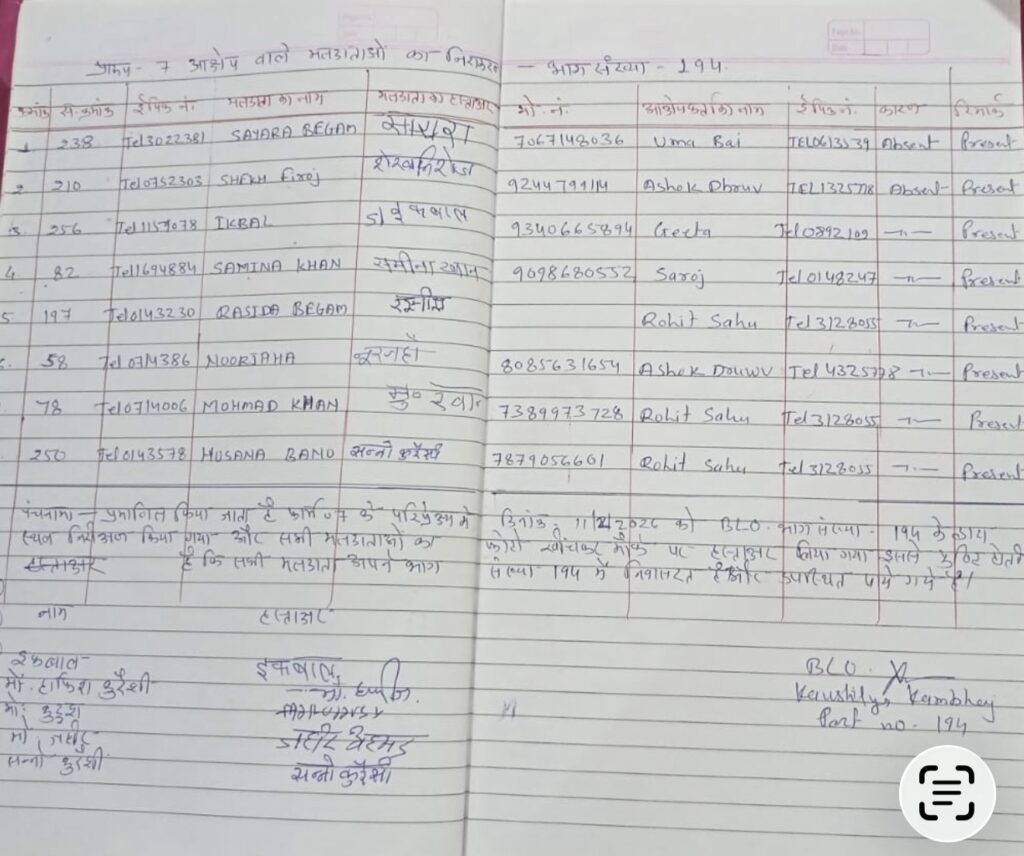 प्रारूप - 7 आक्षेप वाले मतदाताओं का निराकरण - भाग संख्या - 194.
क्रमांक स. क्रमांक ईपिक नं. मतदाता का नाम मतदाता का हस्ताक्षर मो. नं. आक्षेपकर्ता का नाम ईपिक नं. कारण रिमार्क
1 238 Tel3022381 SAYARA BEGAM सायरा 7067148036 Uma Bai TEL0613539 Absent Present
2 210 Tel0752303 SHEKH Firoj 9244799114 Ashok Dhruv TEL1325778 Absent- Present
3. 256 Tel1159078 IKBAL इकबाल 9340665894 Geeta Tel0892109 -"- Present
4. 82 Tel1694884 SAMINA KHAN समीना खान 9098680552 Saroj Tel0148247 -"- Present
5 197 Tel0143230 RASIDA BEGAM Rohit Sahu Tel3128055 -"- Present
58 Tel0714386 NOORJAHA नूरजहाँ 8085631654 Ashok Dhruwv Tel4325778 -"- Present
78 Tel0714006 MOHMAD KHAN मु० खान 7389973728 Rohit Sahu Tel3128055 -"- Present
250 Tel0143578 HUSANA BANO सन्नो कुरैशी 7879056601 Rohit Sahu Tel3128055 -"- Present
पंचनामा - प्रमाणित किया जाता है फार्म 07 के परिप्रेक्ष्य में दिनांक 11/2/2026 को BLO. भाग संख्या - 194 के द्वारा
स्थल निरीक्षण किया गया और सभी मतदाताओं का फोटो खींचकर मौके पर हस्ताक्षर किया गया इससे पुष्टि होती
है कि सभी मतदाता अपने भाग संख्या 194 में निवासरत है और उपस्थित पाये गये है।
नाम हस्ताक्षर
इकबाल इकबाल
मो. हाफिश कुरैशी मो.
मो.
मो. जहीर जहीर अहमद
सन्नो कुरैशी सन्नो कुरैसी
BLO.
Kaushilya Kambhoj
Part no. - 194